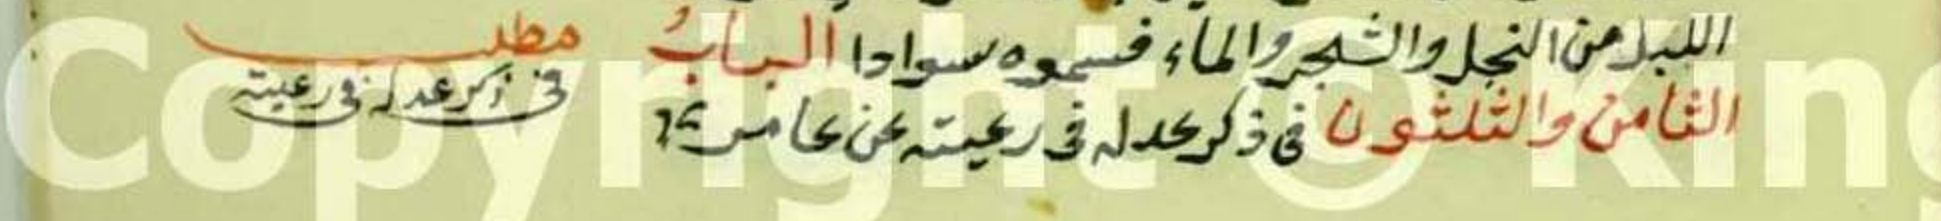 الليل من النخل والشجر والماء فسموه سوادا الباب
الثامن والثلثون في ذكر عدله في رعيته عن عامر
مطلب
في ذكر عدله في رعيته
Copyright © King